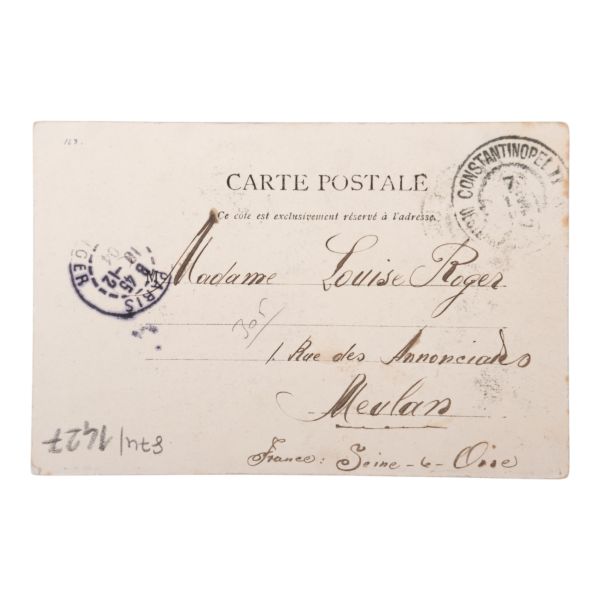 123.
CARTE POSTALE
Ce côté est exclusivement réservé à l'adresse.
CONSTANTINOPEL
7
PARIS
8 45
10 -12
04
Madame Louise Roger
305
1 Rue des Annonciades
Meulan
France: Seine-&-Oise
1427